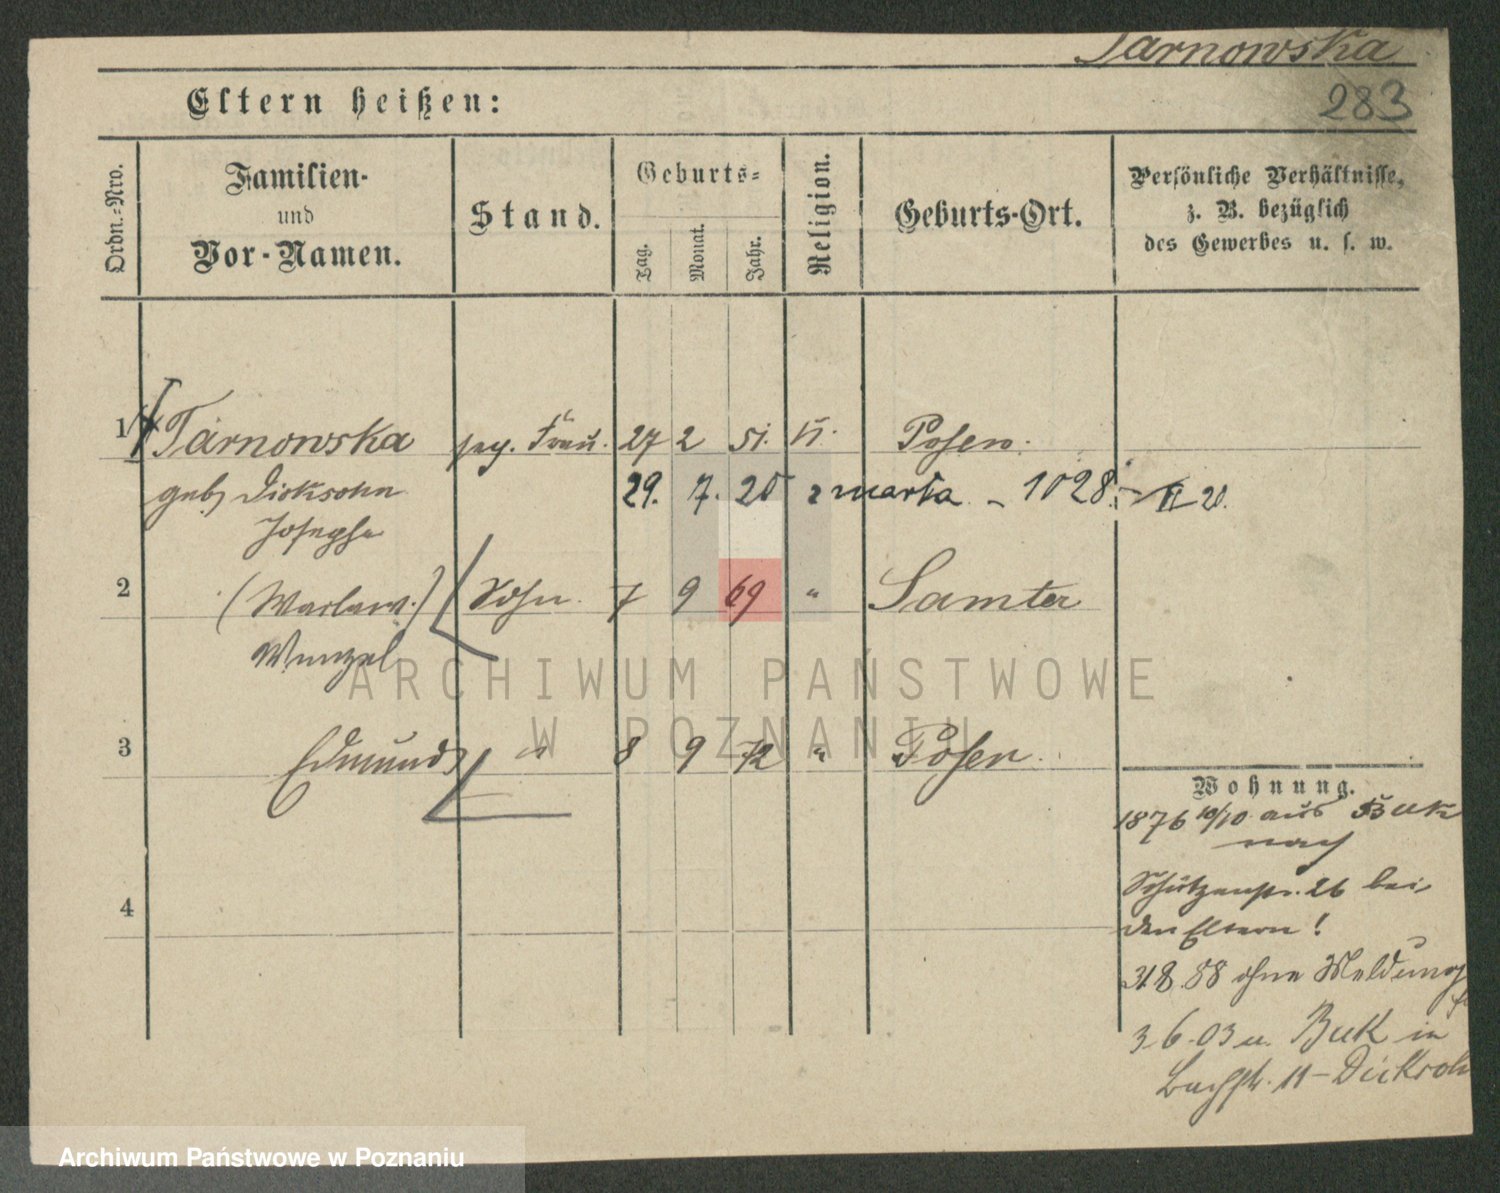 Tarnowska
Eltern heißen:
283
Ordn.-Nro.
Familien-
und
Vor-Namen.
Stand.
Geburts-
Tag.
Monat.
Jahr.
Religion.
Geburts-Ort.
Persönliche Verhältnisse,
z. B. bezüglich
des Gewerbes u. s. w.
1 Tarnowska Frau. 27 2 51. Posen.
geb. Dicksohn 29. 7. 20 marta - 1028.- 20.
Josepha
2 (Waclaw.) Sohn 7 9 69 " Samter
Wenzel
3 Edmund " 8 9 72 " Posen.
Wohnung.
1876 10/10 aus Buk
nach
Schützenstr. 26 bei
den Eltern!
31.8.88 ohne Meldung
3.6.03 u. Buk in
Bachstr. 11 - Dickroh
4
ARCHIWUM PAŃSTWOWE
W POZNANIU
Archiwum Państwowe w Poznaniu